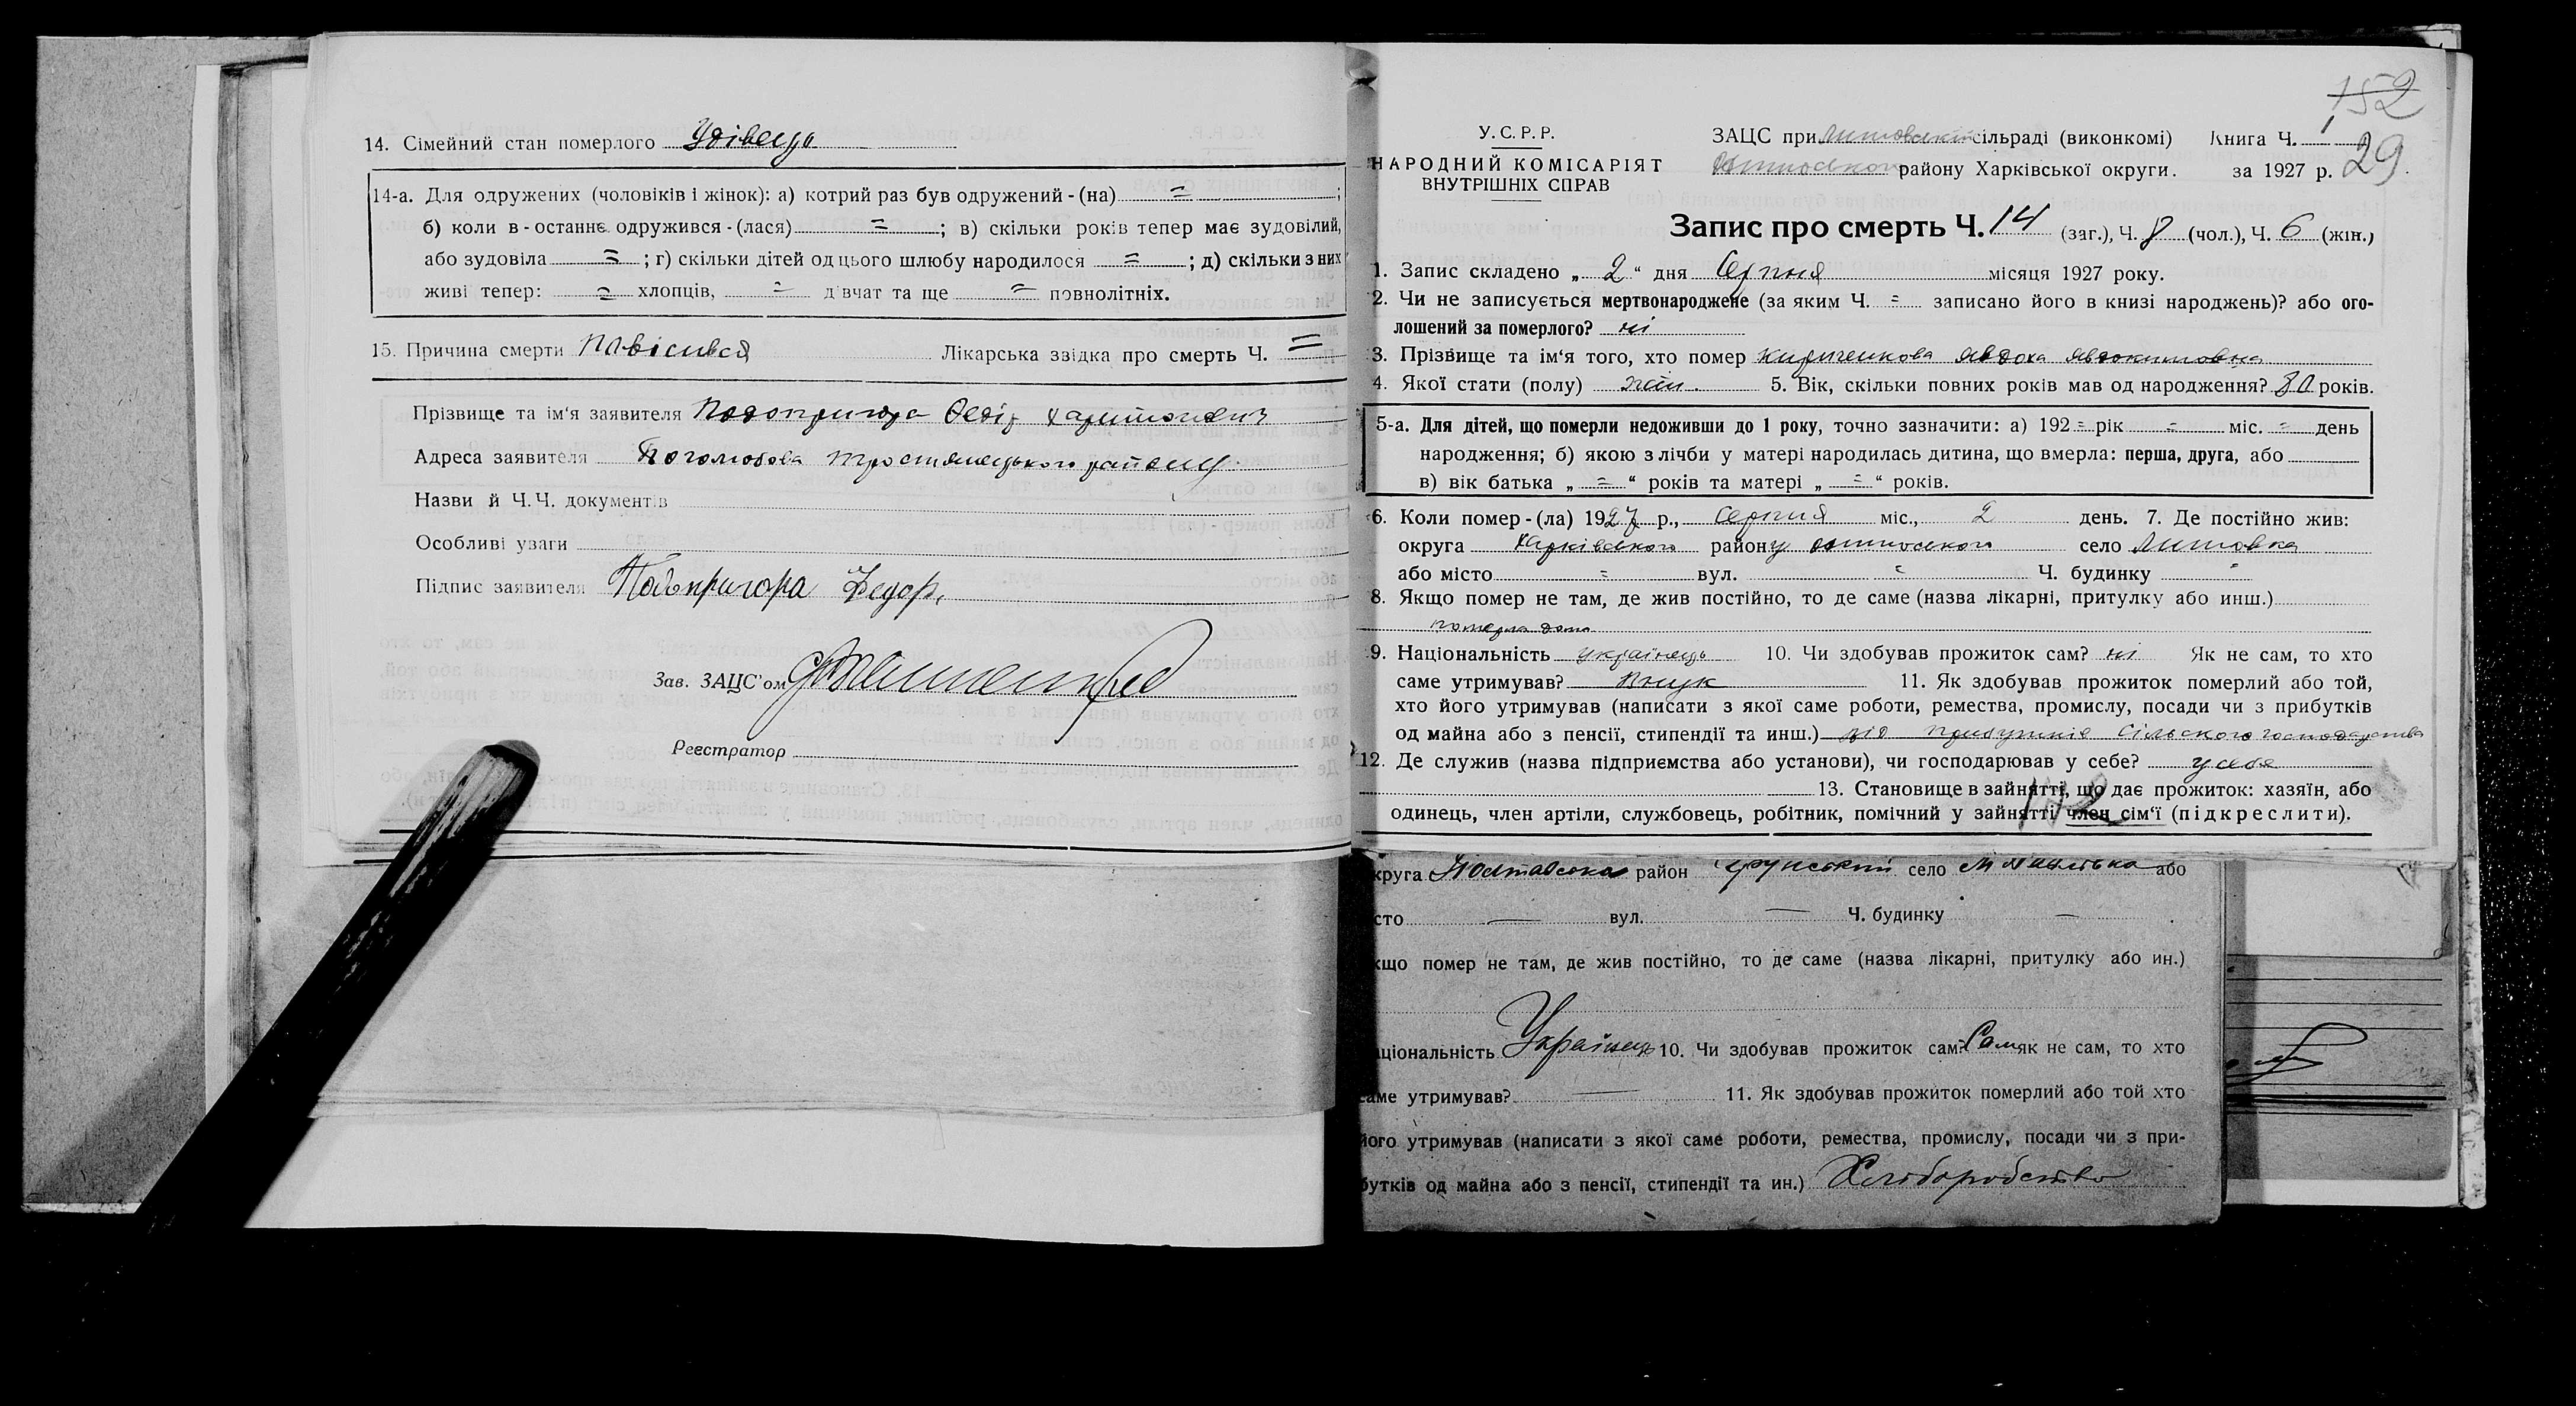 14. Сімейний стан померлого Удівець
14-а. Для одружених (чоловіків і жінок): а) котрий раз був одружений-(на) = ;
б) коли в-останнє одружився-(лася) = ; в) скільки років тепер має зудовілий,
або зудовіла = ; г) скільки дітей од цього шлюбу народилося = ; д) скільки з них
живі тепер: = хлопців, = дівчат та ще = повнолітніх.
15. Причина смерти Повісився Лікарська звідка про смерть Ч. =
Прізвище та ім'я заявителя Подопригора Федір Харитонович
Адреса заявителя Боголюбова тростянецького району.
Назви й Ч.Ч. документів
Особливі уваги
Підпис заявителя Подопригора Федор,
Зав. ЗАЦС'ом
Реєстратор
152
У.С.Р.Р.
НАРОДНИЙ КОМІСАРІЯТ
ВНУТРІШНІХ СПРАВ
ЗАЦС при Литовській сільраді (виконкомі) Книга Ч. 1
району Харківської округи. за 1927 р. 29
Запис про смерть Ч. 14 (заг.), Ч. 8 (чол.), Ч. 6 (жін.)
1. Запис складено „ 2 “ дня Серпня місяця 1927 року.
2. Чи не записується мертвонароджене (за яким Ч. = записано його в книзі народжень)? або ого-
лошений за померлого? ні
3. Прізвище та ім'я того, хто помер Кириченкова Явдоха Явдокимовна
4. Якої стати (полу) жін. 5. Вік, скільки повних років мав од народження? 80 років.
5-а. Для дітей, що померли недоживши до 1 року, точно зазначити: а) 192 = рік = міс. = день
народження; б) якою з лічби у матері народилась дитина, що вмерла: перша, друга, або
в) вік батька „ = “ років та матері „ = “ років.
6. Коли помер-(ла) 1927 р., Серпня міс., 2 день. 7. Де постійно жив:
округа Харківського району село Литовка
або місто = вул. = Ч. будинку =
8. Якщо помер не там, де жив постійно, то де саме (назва лікарні, притулку або инш.)
померла дома
9. Національність українець 10. Чи здобував прожиток сам? ні Як не сам, то хто
саме утримував? Внук 11. Як здобував прожиток померлий або той,
хто його утримував (написати з якої саме роботи, ремества, промислу, посади чи з прибутків
од майна або з пенсії, стипендії та инш.) від прибутків сільского господарства
12. Де служив (назва підприємства або установи), чи господарював у себе? у себе
13. Становище в зайнятті, що дає прожиток: хазяїн, або
одинець, член артіли, службовець, робітник, помічний у зайнятті член сім'ї (підкреслити).
круга Полтавська район Грунський село або
сто — вул. — Ч. будинку —
кщо помер не там, де жив постійно, то де саме (назва лікарні, притулку або ин.)
ціональність Українець 10. Чи здобував прожиток сам? Сам як не сам, то хто
аме утримував? — 11. Як здобував прожиток померлий або той хто
його утримував (написати з якої саме роботи, ремества, промислу, посади чи з при-
бутків од майна або з пенсії, стипендії та ин.) Хліборобство